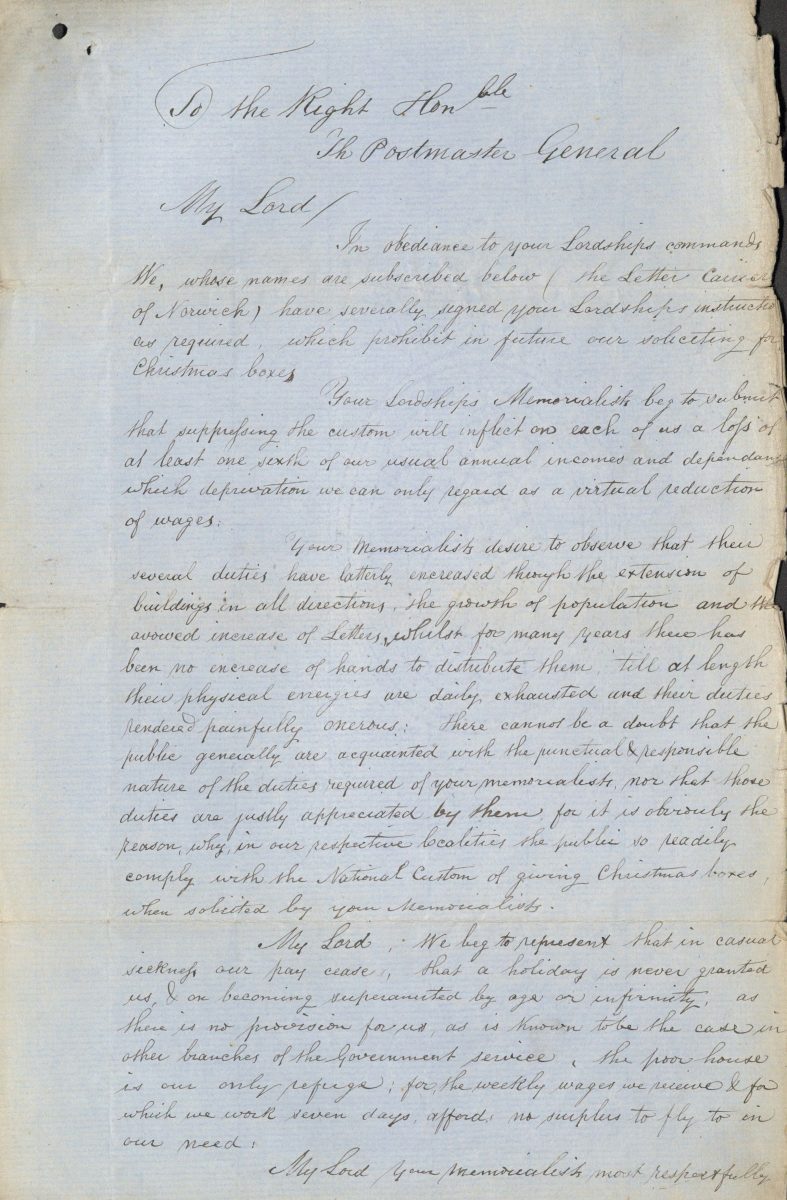 To the Right Honble
Th Postmaster General
My Lord/
In obediance to your Lordships commands
We, whose names are subscribed below ( the Letter Carrier
of Norwich) have severally signed your Lordships instructio
as required, which prohibit in future our soliciting for
Christmas boxes
Your Lordships Memorialists beg to submit
that suppressing the custom will inflict on each of us a loss of
at least one sixth of our usual annual incomes and dependanc
which deprivation we can only regard as a virtual reduction
of wages:
Your Memorialists desire to observe that their
several duties have latterly encreased through the extension of
buildings in all directions, the growth of population and the
avowed increase of Letters, whilst for many years there has
been no increase of hands to distribute them, till at length
their physical energies are daily exhausted and their duties
rendered painfully onerous; there cannot be a doubt that the
public generally are acquainted with the punctual & responsible
nature of the duties required of your memorialists, nor that those
duties are justly appreciated by them, for it is obviouly the
reason, why, in our respective localities the public so readily
comply with the National Custom of giving Christmas boxes,
when solicited by your Memorialists.
My Lord, We beg to represent that in casual
sickness our pay cease, that a holiday is never granted
us, & on becoming superanuted by age or infirmity, as
there is no provision for us, as is known to be the case in
other branches of the Government service, the poor house
is our only refuge; for, the weekly wages we receive & for
which we work seven days, afford, no surplus to fly to in
our need:
My Lord your Memorialists most respectfully